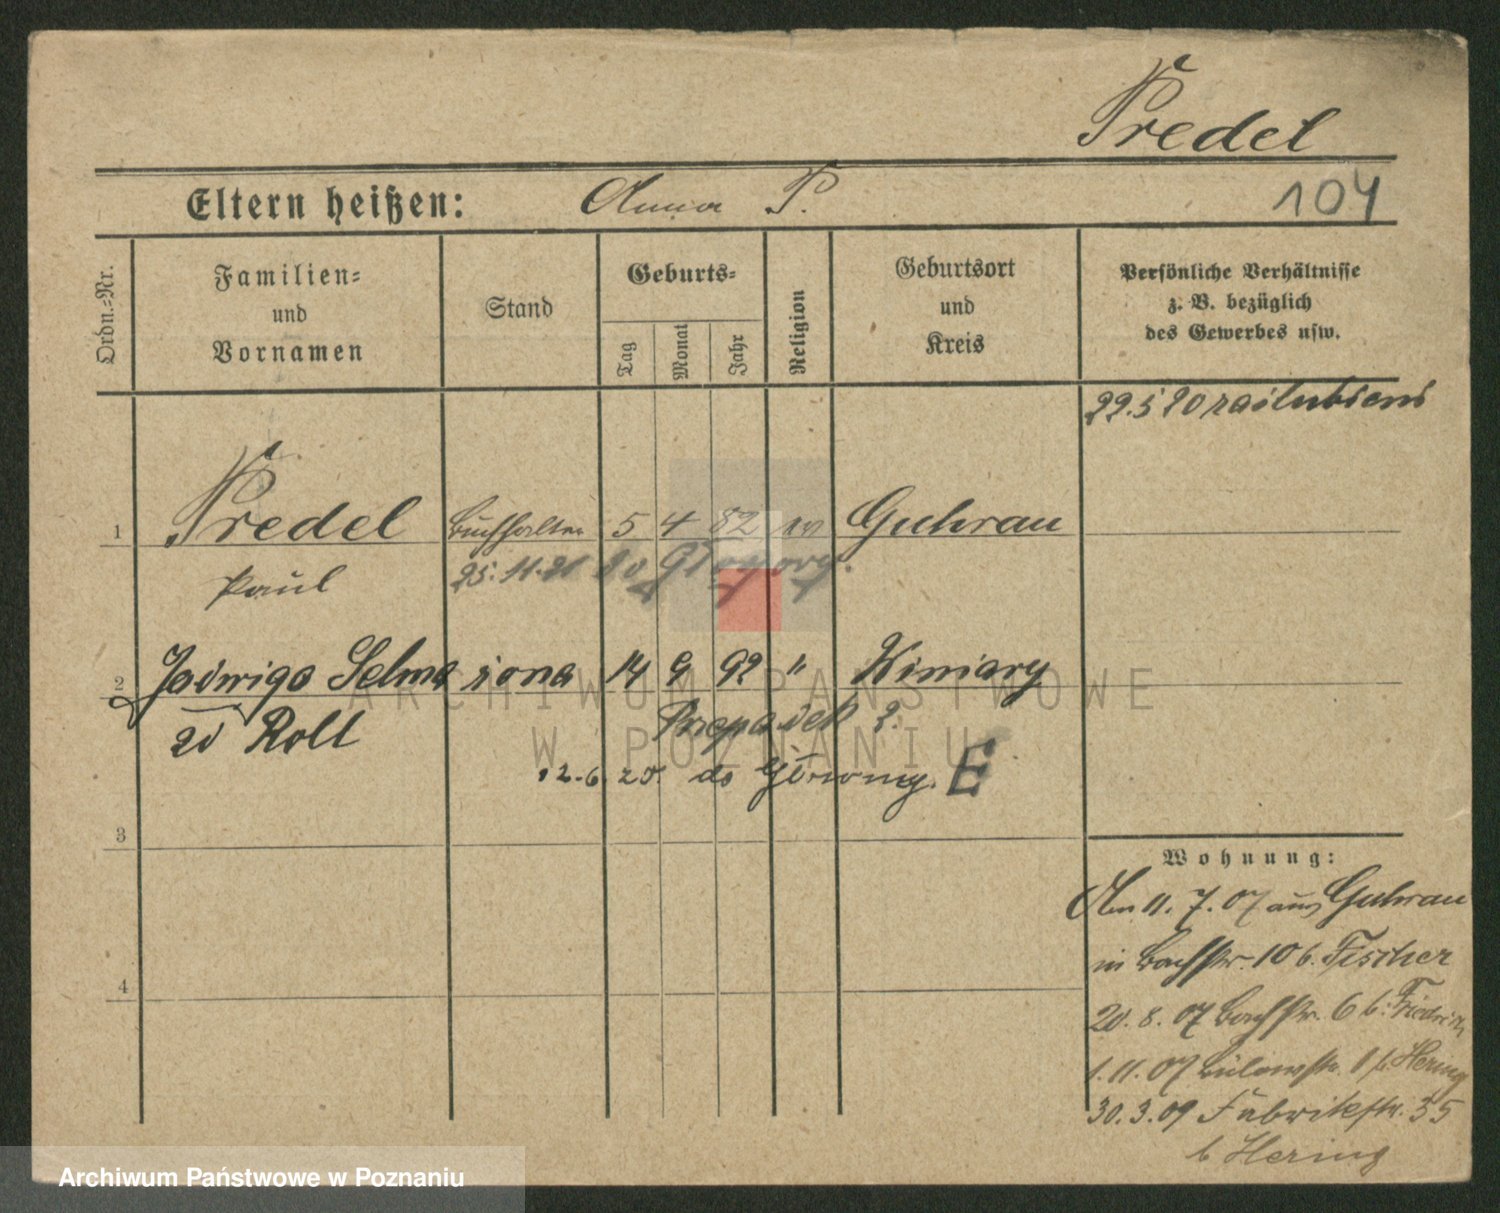 Predel
Eltern heißen: Anna P.
104
Ordn.-Nr.
Familien- und Vornamen
Stand
Geburts-
Tag
Monat
Jahr
Religion
Geburtsort und Kreis
Persönliche Verhältnisse
z. B. bezüglich
des Gewerbes usw.
22.5 20 zaślubieni
1 Predel Buchhalter 5 4 82 ev Guhrau
Paul 25. 11. 21
2 Jadwiga Selma żona 14 9 92 " Winiary
zd Roll
12.6.20. do
E
3
4
Wohnung:
Am 11. 7. 07 aus Guhrau
in Bachstr. 10 b. Fischer
20. 8. 07 Bachstr. 6 b. Friedrich
1. 11. 07 Bülowstr. 1 b. Hering
30. 3. 09 Fabrikstr. 35
b Hering
ARCHIWUM PAŃSTWOWE
W POZNANIU
Archiwum Państwowe w Poznaniu